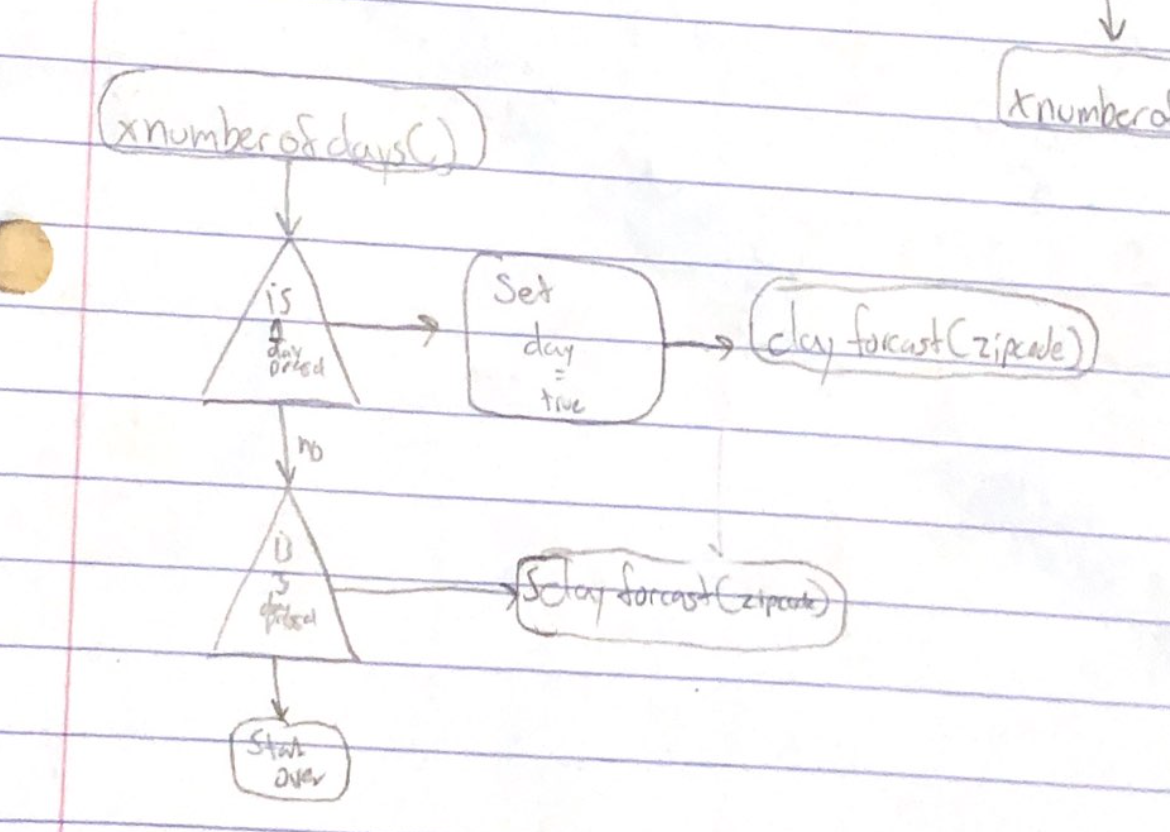 xnumberofdays()
xnumberof
is
day
presed
Set
day
=
true
day forcast(zipcode)
no
is
5
day
presed
5day forcast(zipcode)
Start
over